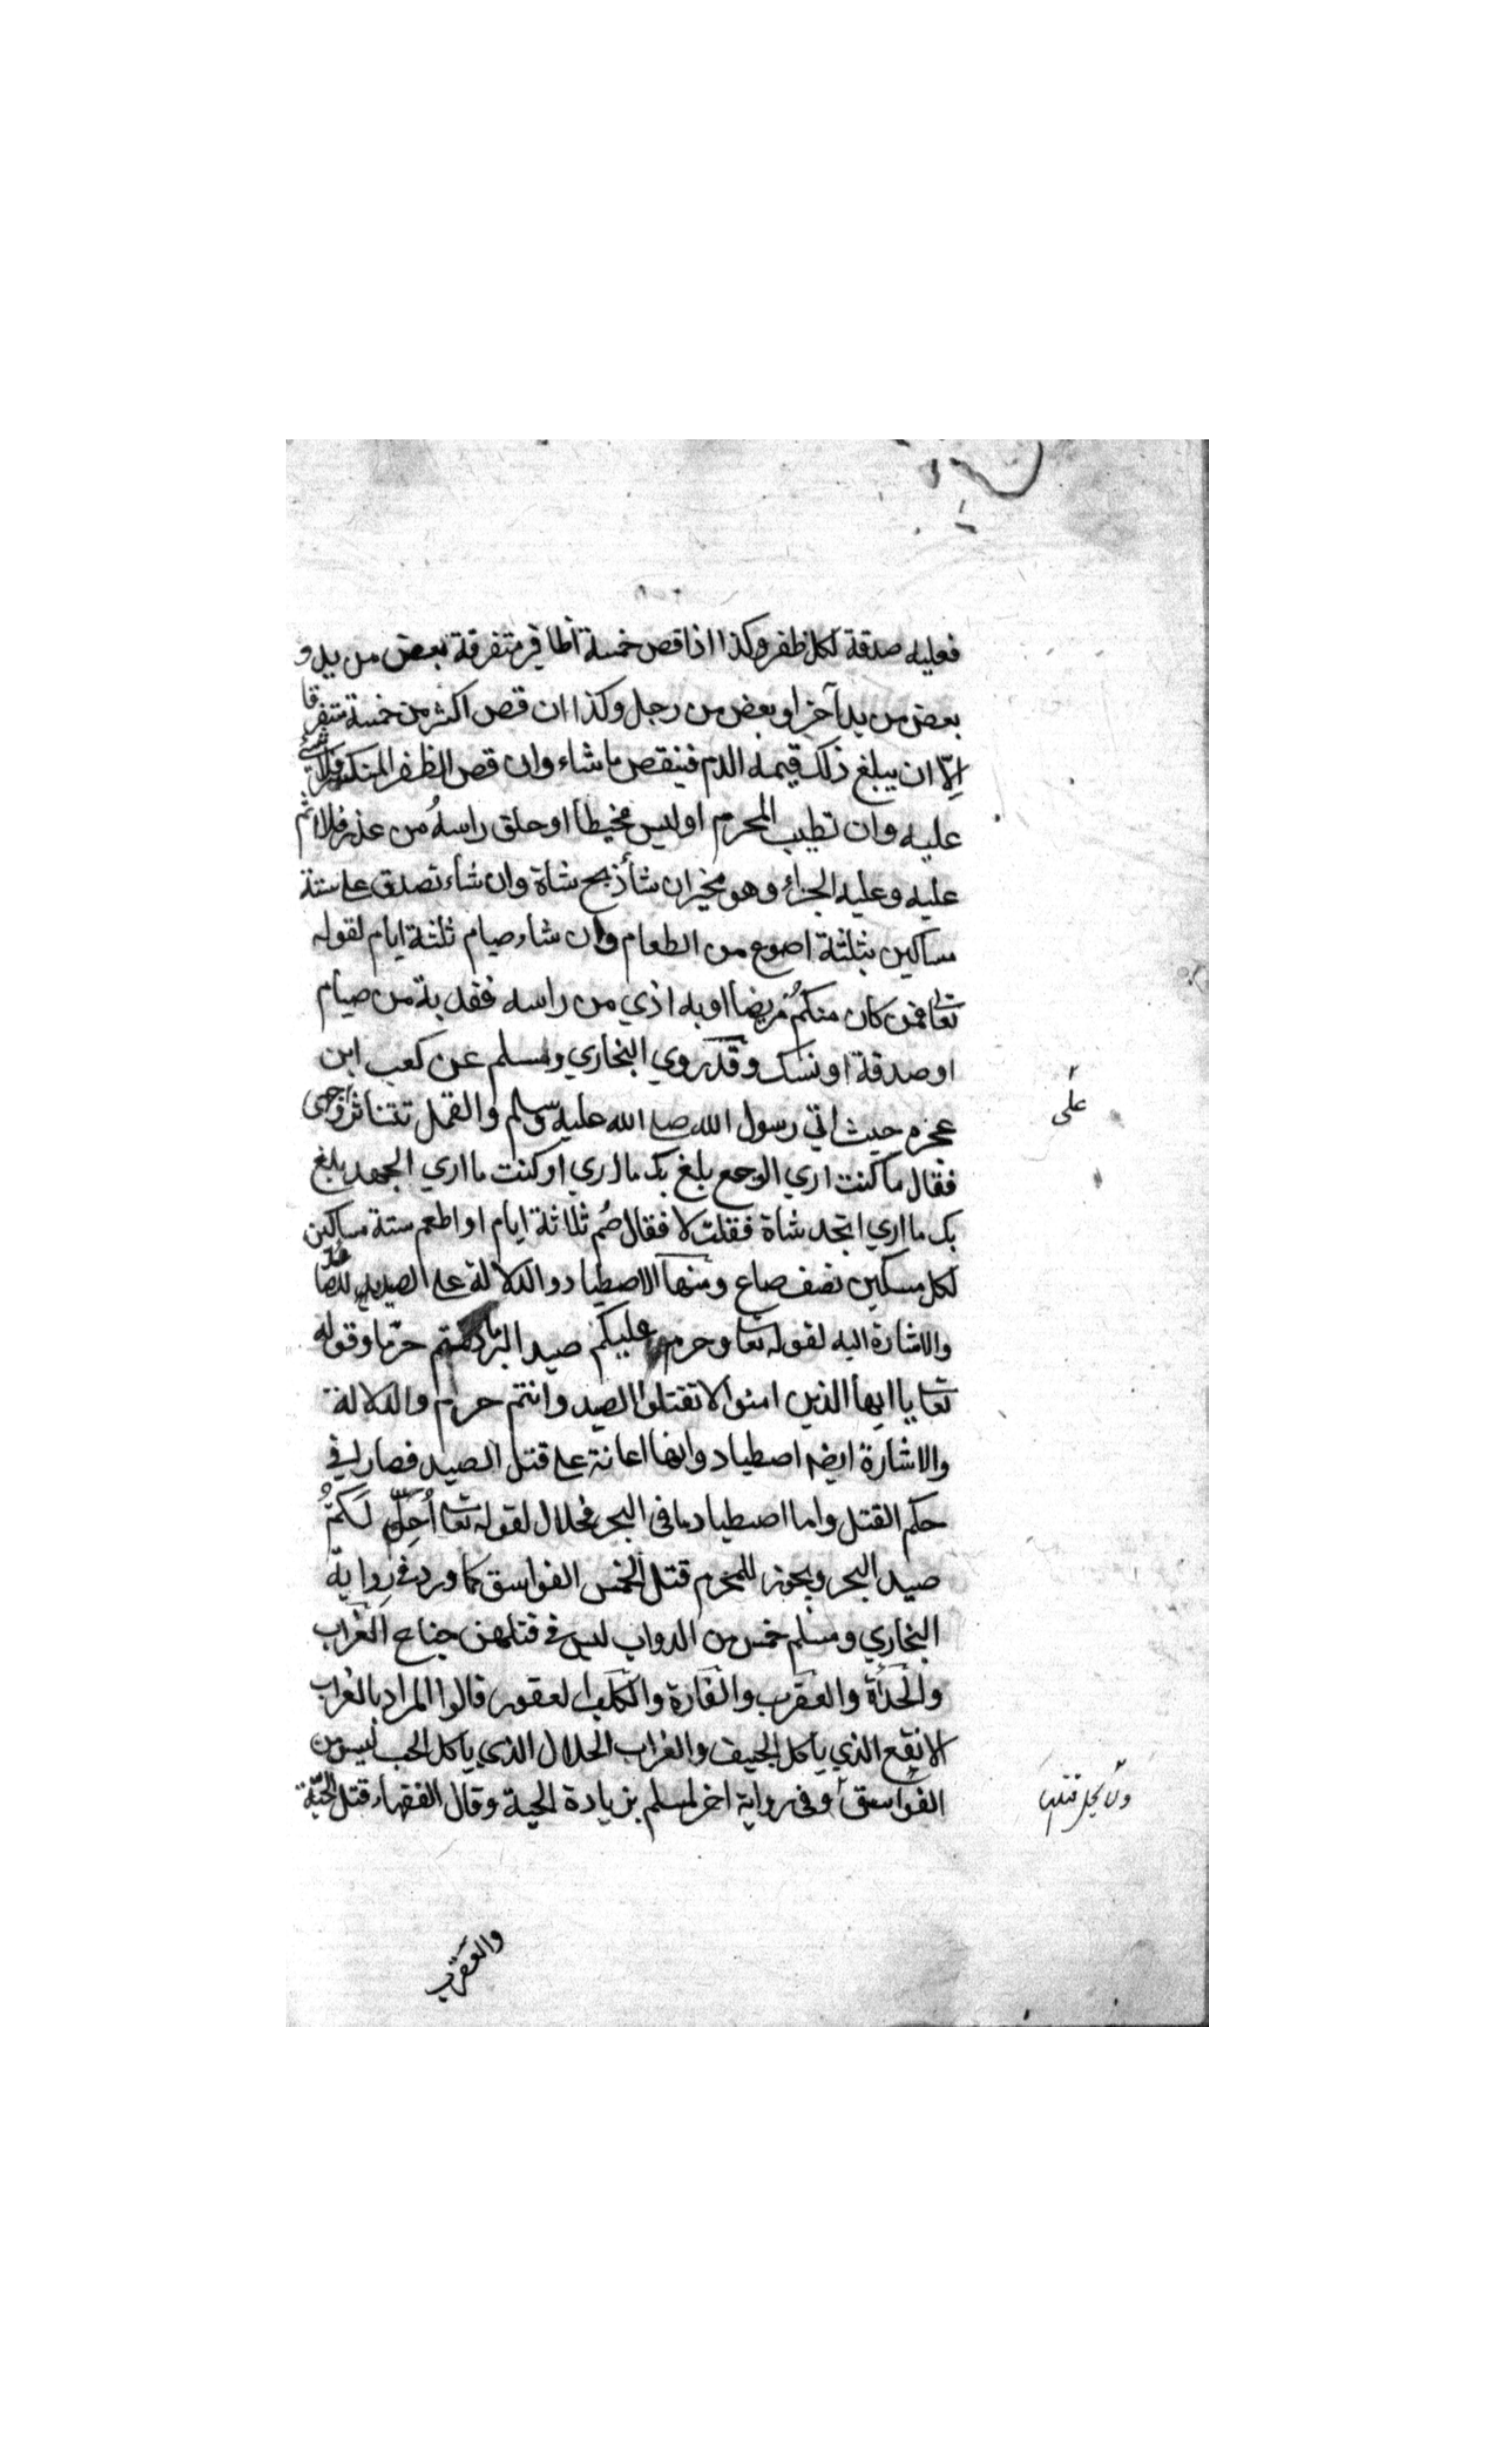 فعليه صدقة لكل ظفر وكذا اذا قص خمسة أظافير متفرقة بعض من يد و
بعض من يد آخر او بعض من رجل وكذا ان قص اكثر من خمسة متفرقا
إلّا ان يبلغ ذلك قيمه الدم فينقص ما شاء وان قص الظفر المنكسر فلا شئ
عليه وان تطيب المحرم او لبس مخيطا او حلق راسهُ من عذر فلا اثم
عليه وعليه الجزاء وهو مخير ان شأ ذبح شاة وان شاء تصدق على ستة
مساكين بثلثة اصوع من الطعام وان شاء صيام ثلثة ايام لقوله
تعا فمن كان منكمُ مريضا او به اذي من راسه ففدية من صيام
او صدقة او نسك وقد روي البخاري ومسلم عن كعب ابن
عجزه حيث اتي رسول الله صلى الله عليه وسلم والقمل تتناثر وجهى
على
فقال ما كنت اري الوجع بلغ بك ما اري او كنت ما اري الجهد بلغ
بك ما اري اتجد شاة فقلت لا فقال صُم ثلاثة ايام او اطعم ستة مساكين
لكل مسكين نصف صاع ومنها الاصطياد والدلالة على الصيد
والاشارة اليه لقوله تعا وحرم عليكم صيد البر ما دمتم حرما وقوله
تعا يا ايها الذين امنوا لا تقتلوا الصيد وانتم حرم والدلالة
والاشارة ايضا اصطياد وانها اعانة على قتل الصيد فصار في
حكم القتل واما اصطياد ما في البحر فحلال لقوله تعا أُحِلّ لَكمُ
صيد البحر ويجوز للمحرم قتل الخمس الفواسق كما ورد في رواية
البخاري ومسلم خمس من الدواب ليس في قتلهن جناح الغراب
والحدأة والعقرب والفارة والكلب العقور قالوا المراد بالغراب
الابقع الذي ياكل الجيف والغراب الحلال الذي ياكل الحب ليس من
الفواسق وفي رواية اخر لمسلم بزيادة الحية وقال الفقهاء قتل الحيّة
ولا يحل قتلها
والعقرب